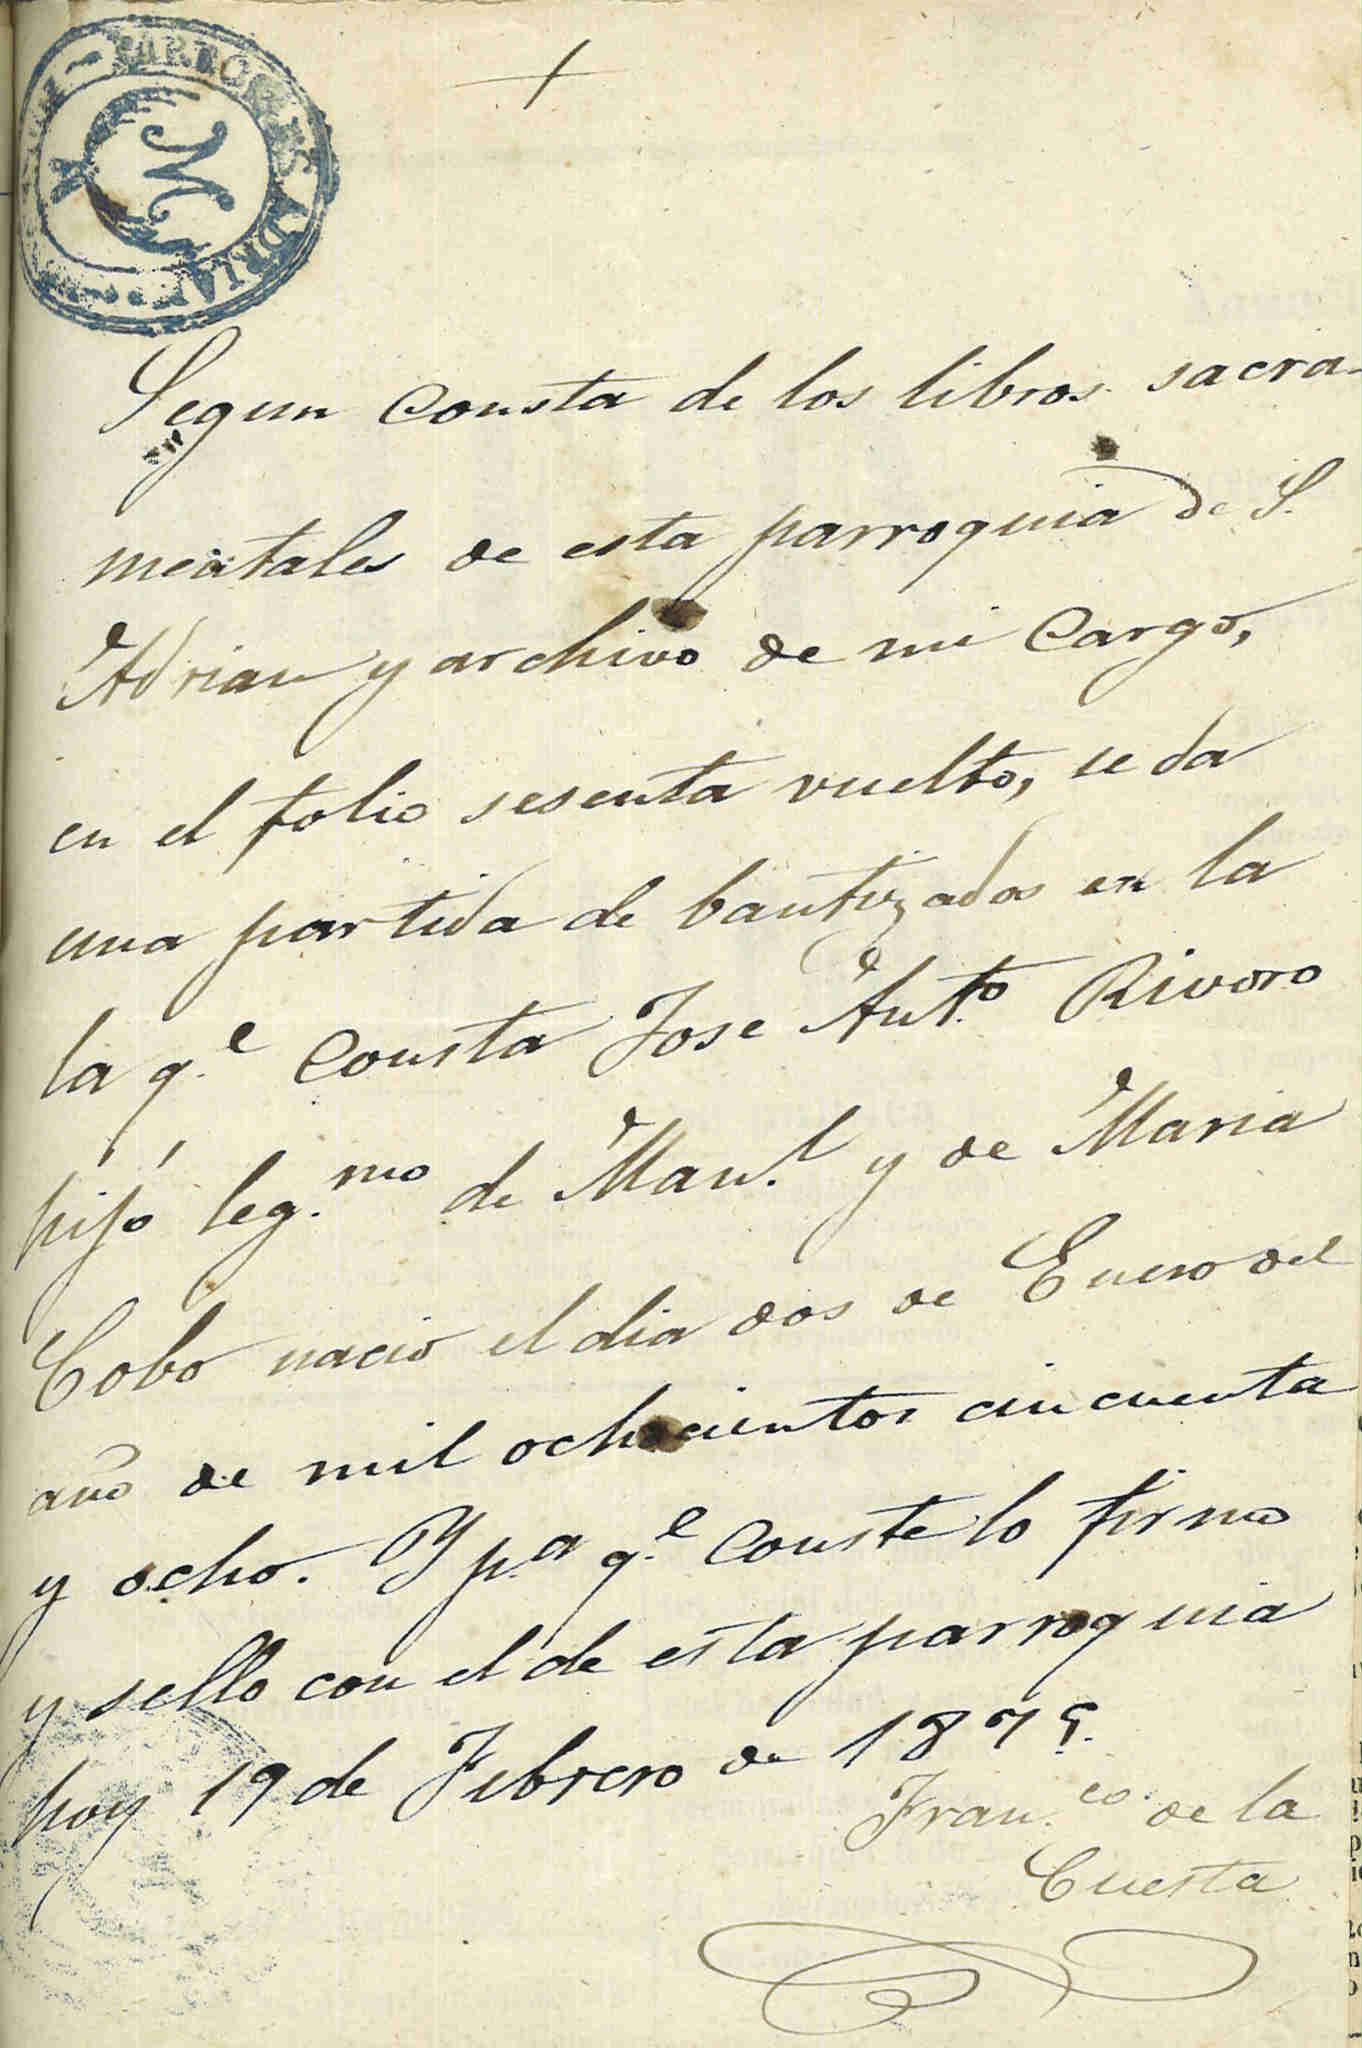 PARROQUIS ADRIA
M
Segun consta de los libros sacra-
mentales de esta parroquia de S.
Adrian y archivo de mi cargo,
en el folio sesenta vuelto, se da
una partida de bautizados en la
la q.e consta Jose Ant.o Rivero
hijo leg.mo de Man.l y de Maria
Cobo nacio el dia dos de Enero del
año de mil ochocientos cincuenta
y ocho. Y p.a q.e conste lo firmo
y sello con el de esta parroquia
hoy 19 de Febrero de 1879.
Fran.co de la
Cuesta